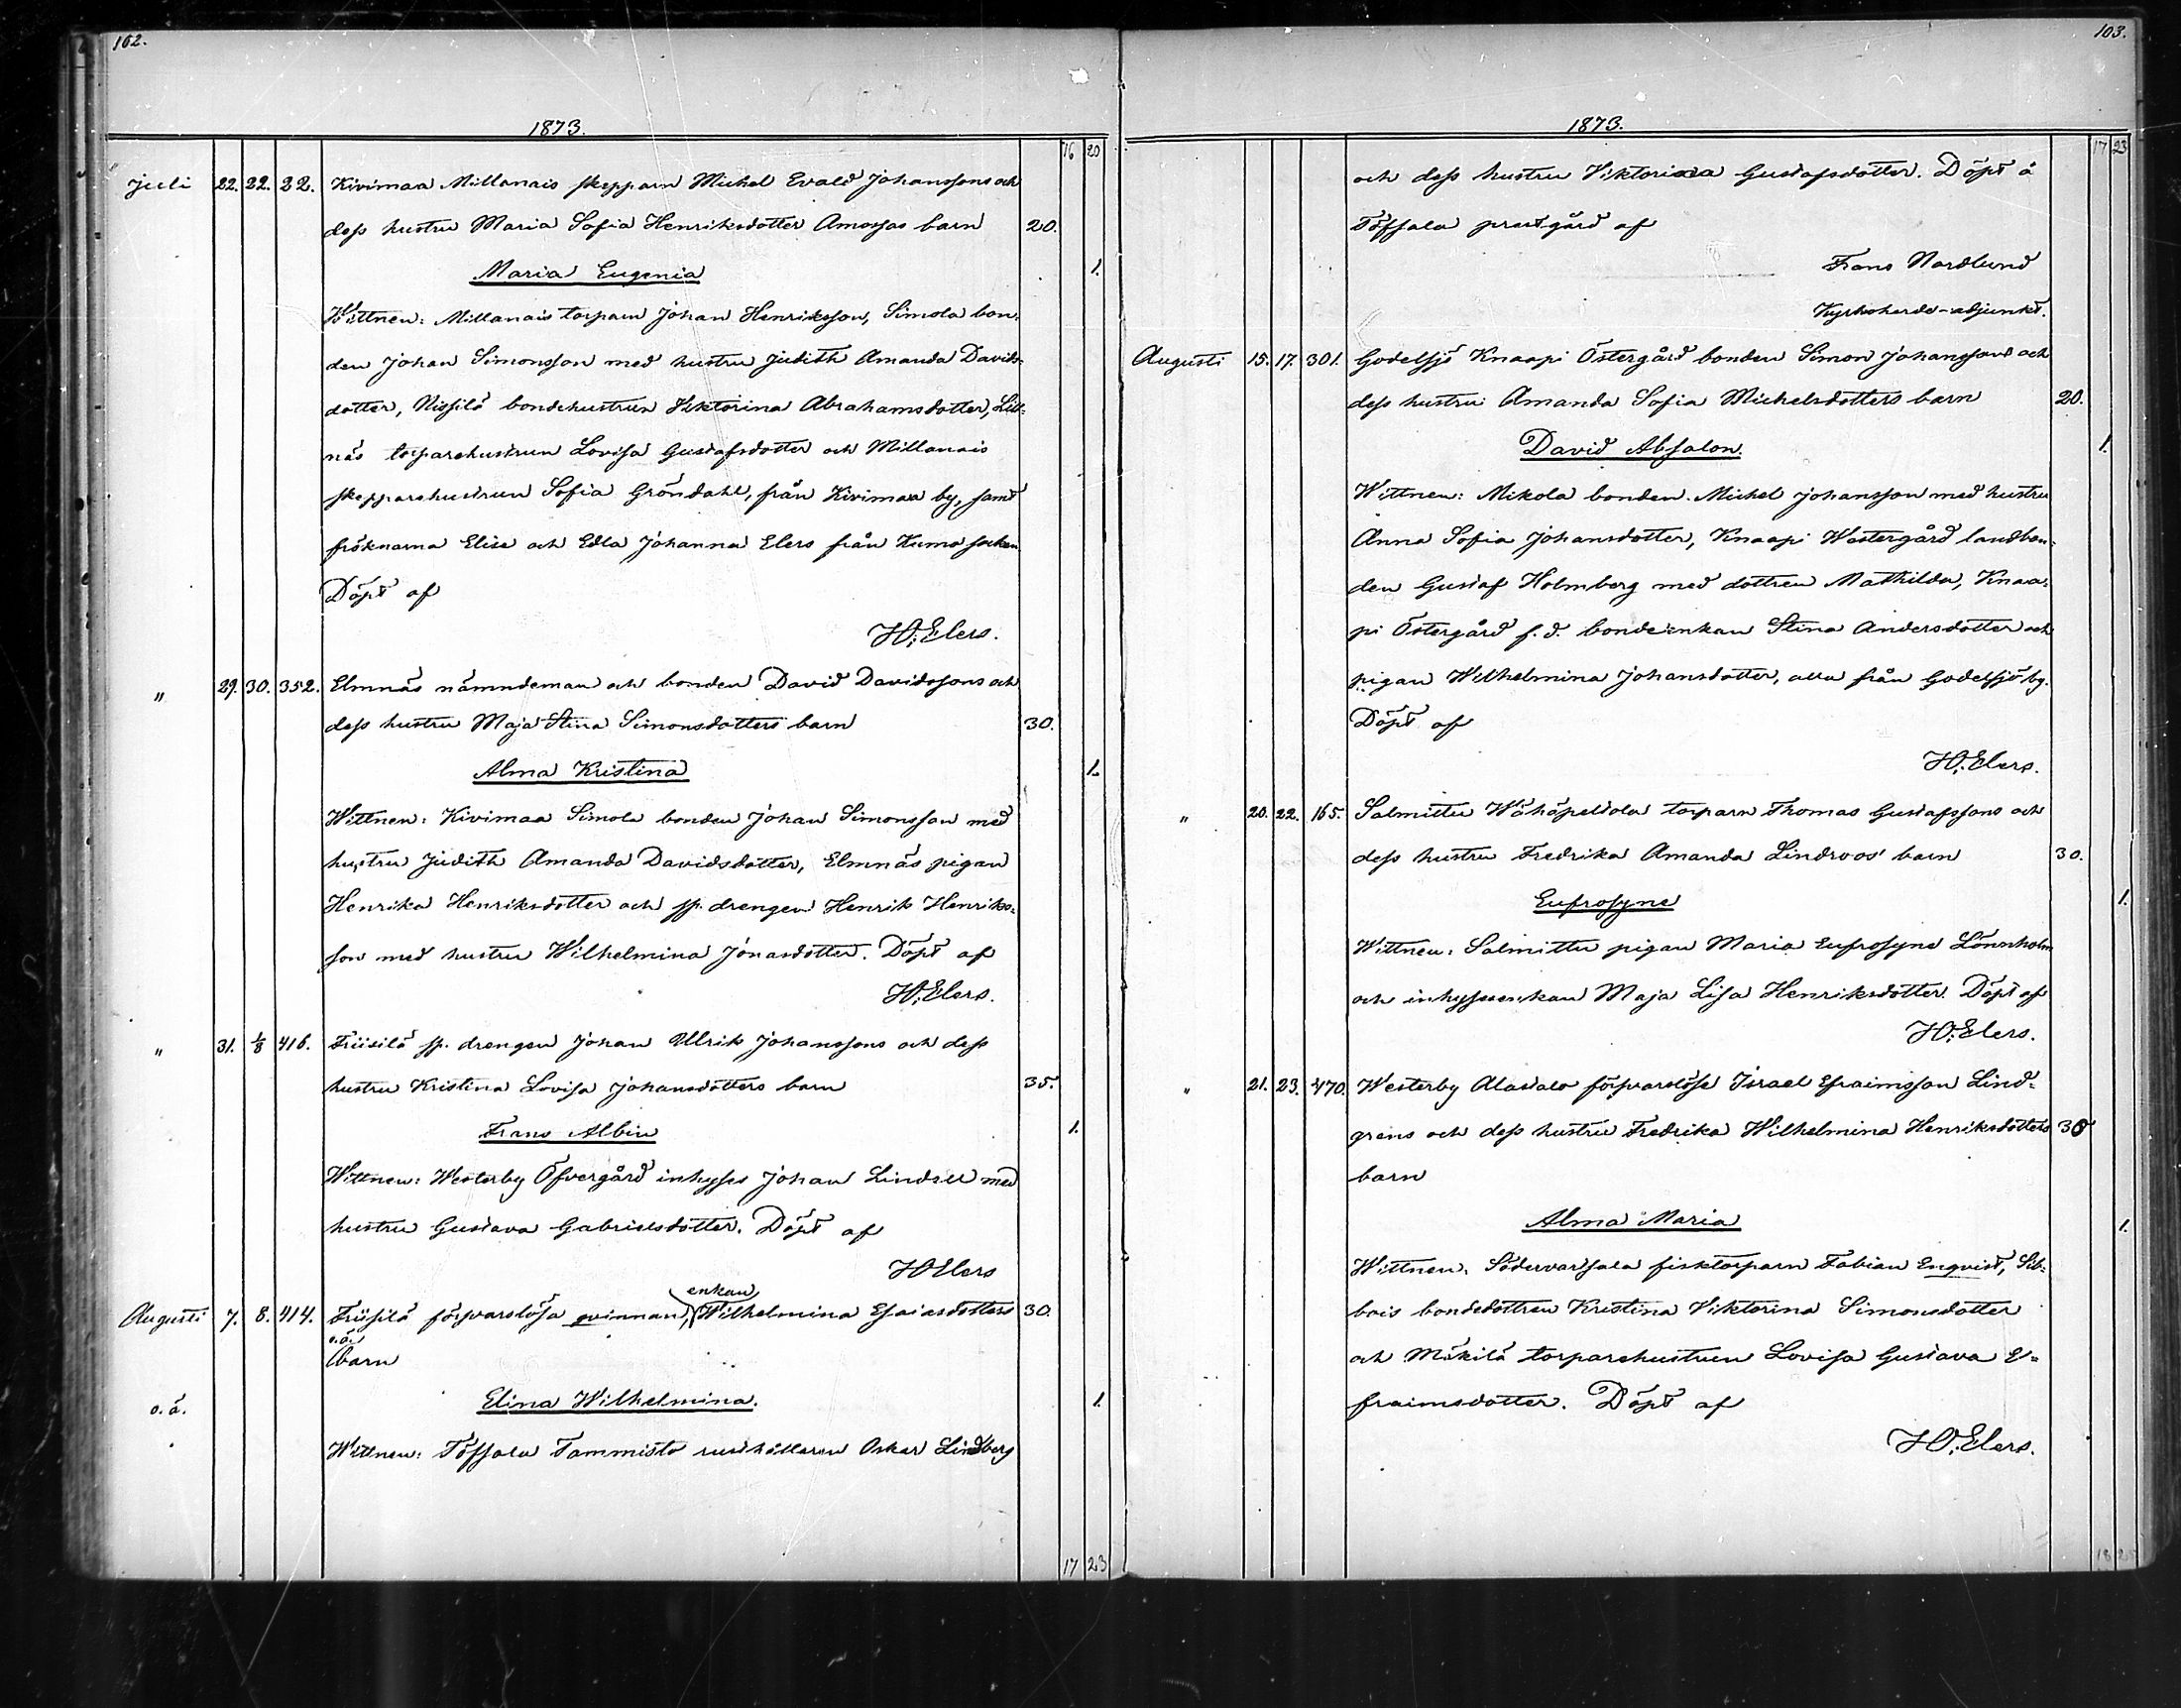 162.
1873.
16 20
Juli 22. 22. 22. Kivimaa Millanais skepparn Michel Evald Johanssons och
dess hustru Maria Sofia Henriksdotter Amossas barn 20.
Maria Eugenia 1.
Wittnen: Millanais torparn Johan Henriksson, Simola bon-
den Johan Simonsson med hustru Judith Amanda Davids-
dotter, Nissilä bondehustrun Viktorina Abrahamsdotter, Lill-
näs torparehustrun Lovisa Gustafsdotter och Millanais
skepparehustrun Sofia Gröndahl, från Kivimaa by, samt
fröknarna Elise och Edla Johanna Elers från Kumo socken
Döpt af
H. Elers.
" 29. 30. 352. Elmnäs nämndeman och bonden David Davidssons och
dess hustru Maja Stina Simonsdotters barn 30.
Alma Kristina 1.
Wittnen: Kivimaa Simola bonden Johan Simonsson med
hustru Judith Amanda Davidsdotter, Elmnäs pigan
Henrika Henriksdotter och sp. drengen Henrik Henriks-
son med hustru Wilhelmina Jonasdotter. Döpt af
H. Elers.
" 31. 1/8 416. Friisilä sp. drengen Johan Ulrik Johanssons och dess
hustru Kristina Lovisa Johansdotters barn 35.
Frans Albin 1.
Wittnen: Westerby Öfvergård inhyses Johan Lindell med
hustru Gustava Gabrielsdotter. Döpt af
H Elers
enkan
Augusti 7. 8. 414. Friisilä försvarslösa qvinnan, Wilhelmina Esaiasdotters 30.
o.ä.
barn
o.ä. Elina Wilhelmina. 1.
Wittnen: Töfsala Tammisto rusthållaren Oskar Lindberg
17 23
103.
1873.
17 23
och dess hustru Viktorina Gustafsdotter. Döpt å
Töfsala prestgård af
Frans Nordlund
Kyrkoherde-adjunkt.
Augusti 15. 17. 301. Godelsjö Knaapi Östergård bonden Simon Johanssons och
dess hustru Amanda Sofia Michelsdotters barn 20.
David Absalon. 1.
Wittnen: Mikola bonden Michel Johansson med hustru
Anna Sofia Johansdotter, Knaapi Westergård landbon-
den Gustaf Holmberg med dottren Mathilda, Knaa-
pi Östergård f.d. bondeenkan Stina Andersdotter och
pigan Wilhelmina Johansdotter, alla från Godelsjö by.
Döpt af
H. Elers.
" 20. 22. 165. Salmittu Wähäpeltola torparn Thomas Gustafssons och
dess hustru Fredrika Amanda Lindroos' barn 30.
Eufrosyne 1.
Wittnen: Salmittu pigan Maria Eufrosyne Lönnholm
och inhysesenkan Maja Lisa Henriksdotter. Döpt af
H. Elers.
" 21. 23. 470. Westerby Alastalo försvarslöse Israel Efraimsson Lind-
grens och dess hustru Fredrika Wilhelmina Henriksdotters 30
barn
Alma Maria 1.
Wittnen: Södervartsala fisktorparn Fabian Enqvist, Sib-
bois bondedottren Kristina Viktorina Simonsdotter
och Mäkilä torparehustrun Lovisa Gustava E-
fraimsdotter. Döpt af
H. Elers.
18